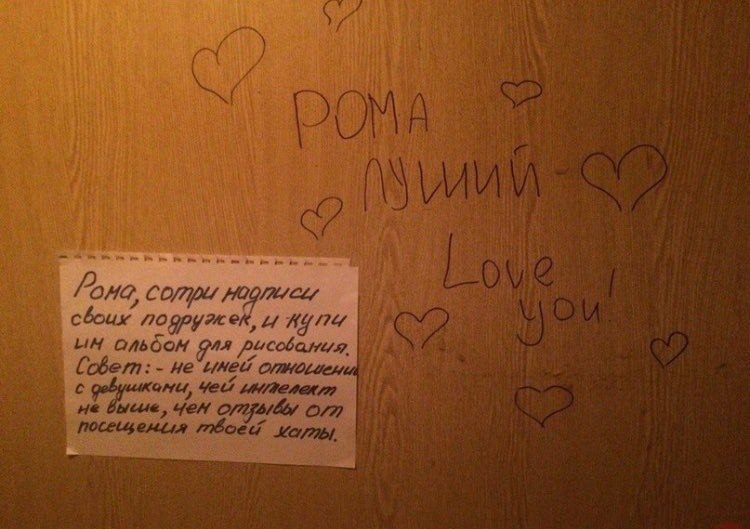 РОМА
ЛУШИЙ
Love
you!
Рома, сотри надписи
своих подружек, и купи
им альбом для рисования.
Совет: - не имей отношени
с девушками, чей интелект
не выше, чем отзывы от
посещения твоей хаты.